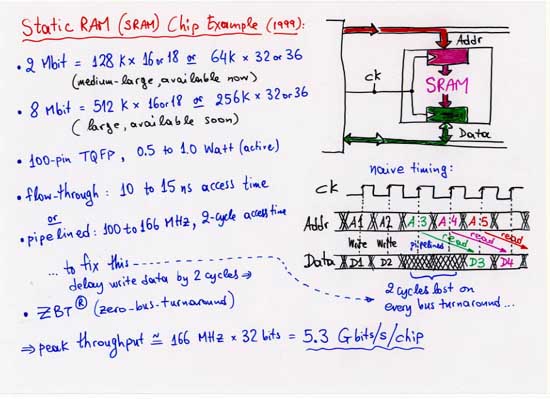 Static RAM (SRAM) Chip Example (1999):
• 2 Mbit = 128 K × 16 or 18 or 64K × 32 or 36
(medium-large, available now)
• 8 Mbit = 512 K × 16 or 18 or 256K × 32 or 36
(large, available soon)
• 100-pin TQFP, 0.5 to 1.0 Watt (active)
• flow-through: 10 to 15 ns access time
or
• pipelined: 100 to 166 MHz, 2-cycle access time
... to fix this
delay write data by 2 cycles ⇒
• ZBT® (zero-bus-turnaround)
⇒ peak throughput ≃ 166 MHz × 32 bits = 5.3 Gbits/s/chip
Addr
ck
SRAM
Data
naive timing:
ck
Addr A1 A2 A:3 A:4 A:5
write write pipelined read read read
Data D1 D2 D3 D4
2 cycles lost on
every bus turnaround...